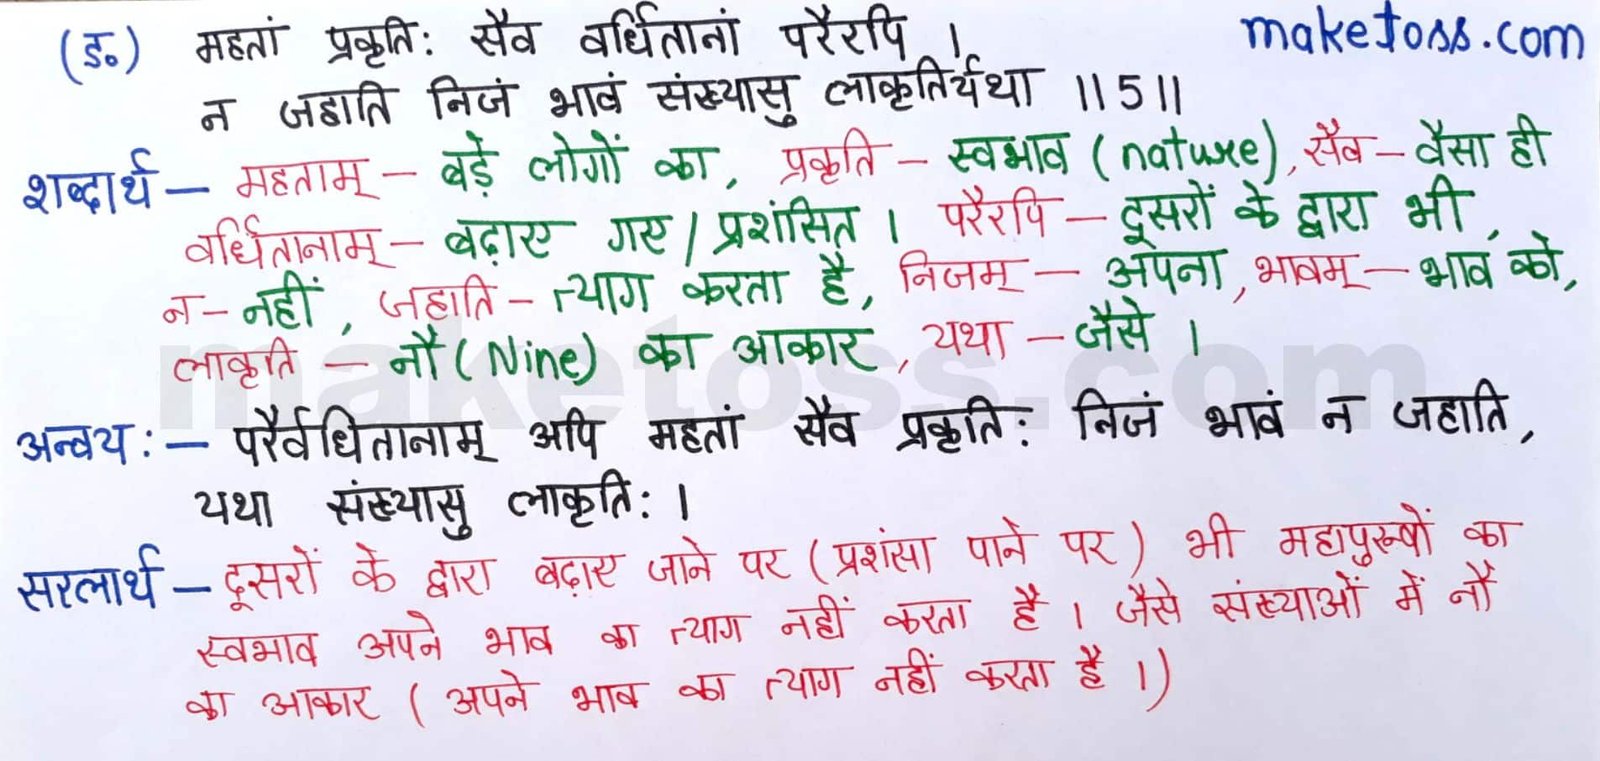 (ङ०) महतां प्रकृति: सैव वर्धितानां परैरपि । maketoss.com
न जहाति निजं भावं संख्यासु लाकृतिर्यथा ||5||
शब्दार्थ – महताम् – बड़े लोगों का, प्रकृति – स्वभाव (nature), सैव – वैसा ही
वर्धितानाम् – बढ़ाए गए / प्रशंसित । परैरपि – दूसरों के द्वारा भी,
न – नहीं, जहाति – त्याग करता है, निजम् – अपना, भावम् – भाव को,
लाकृति – नौ (Nine) का आकार, यथा – जैसे ।
maketoss.com
अन्वय: – परैर्वधितानाम् अपि महतां सैव प्रकृति: निजं भावं न जहाति,
यथा संख्यासु लाकृति: ।
सरलार्थ – दूसरों के द्वारा बढ़ाए जाने पर (प्रशंसा पाने पर) भी महापुरुषों का
स्वभाव अपने भाव का त्याग नहीं करता है । जैसे संख्याओं में नौ
का आकार ( अपने भाव का त्याग नहीं करता है ।)